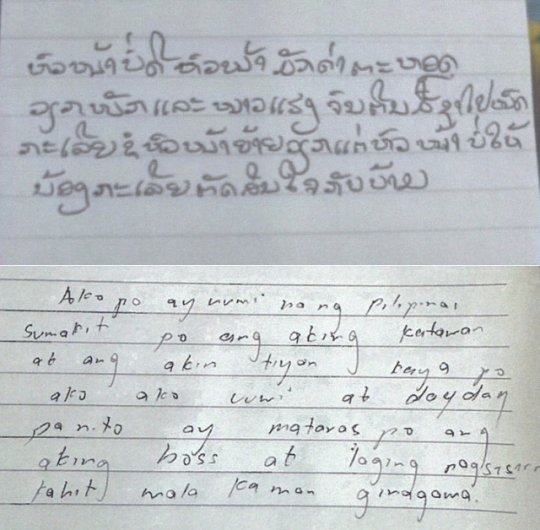 ຫົວໜ້າບໍ່ດີ ຫົວໜ້າ ມັກດ່າ ຕະຫອດ
ວຽກໜັກ ແລະ ໜາວແຮງ ຈົນ ໄປໝົດ
ກະເລີຍຂໍຫົວໜ້າຍ້າຍວຽກແຕ່ຫົວໜ້າບໍ່ໃຫ້
ນ້ອງກະເລີຍຕັດສິນໃຈກັບບ້ານ
Ako po ay uumi na ng pilipinas
Sumakit po ang aking katawan
at ang akin tiyan kaya po
ako ako uuwi at dayday
pa n.to ay mataras po ang
aking boss at laging
kahit mala ka man ginagawa.